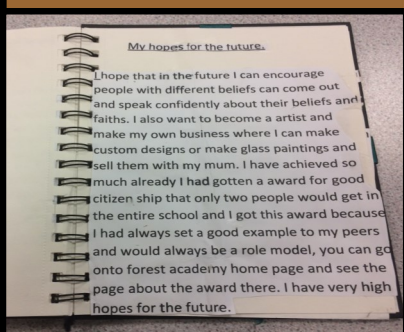 My hopes for the future.
I hope that in the future I can encourage
people with different beliefs can come out
and speak confidently about their beliefs and
faiths. I also want to become a artist and
make my own business where I can make
custom designs or make glass paintings and
sell them with my mum. I have achieved so
much already I had gotten a award for good
citizen ship that only two people would get in
the entire school and I got this award because
I had always set a good example to my peers
and would always be a role model, you can go
onto forest academy home page and see the
page about the award there. I have very high
hopes for the future.